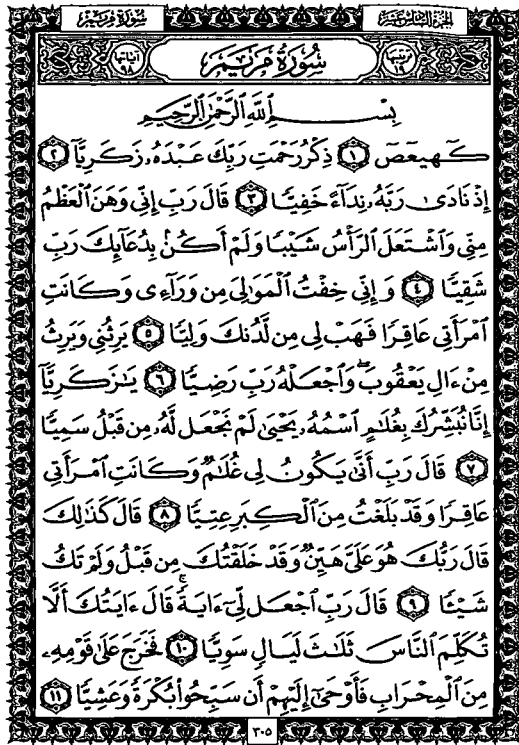 سُورَةُ مَرۡيَمَ
الجُزْءُ السَّادِسَ عَشَرَ
آياتها ٩٨
سُورَةُ مَرْيَمَ
ترتيبها ١٩
بِسۡمِ ٱللَّهِ ٱلرَّحۡمَٰنِ ٱلرَّحِيمِ
كٓهيعٓصٓ ١ ذِكۡرُ رَحۡمَتِ رَبِّكَ عَبۡدَهُۥ زَكَرِيَّآ ٢
إِذۡ نَادَىٰ رَبَّهُۥ نِدَآءً خَفِيّٗا ٣ قَالَ رَبِّ إِنِّي وَهَنَ ٱلۡعَظۡمُ
مِنِّي وَٱشۡتَعَلَ ٱلرَّأۡسُ شَيۡبٗا وَلَمۡ أَكُنۢ بِدُعَآئِكَ رَبِّ
شَقِيّٗا ٤ وَإِنِّي خِفۡتُ ٱلۡمَوَٰلِيَ مِن وَرَآءِي وَكَانَتِ
ٱمۡرَأَتِي عَاقِرٗا فَهَبۡ لِي مِن لَّدُنكَ وَلِيّٗا ٥ يَرِثُنِي وَيَرِثُ
مِنۡ ءَالِ يَعۡقُوبَۖ وَٱجۡعَلۡهُ رَبِّ رَضِيّٗا ٦ يَٰزَكَرِيَّآ
إِنَّا نُبَشِّرُكَ بِغُلَٰمٍ ٱسۡمُهُۥ يَحۡيَىٰ لَمۡ نَجۡعَل لَّهُۥ مِن قَبۡلُ سَمِيّٗا
٧ قَالَ رَبِّ أَنَّىٰ يَكُونُ لِي غُلَٰمٞ وَكَانَتِ ٱمۡرَأَتِي
عَاقِرٗا وَقَدۡ بَلَغۡتُ مِنَ ٱلۡكِبَرِ عِتِيّٗا ٨ قَالَ كَذَٰلِكَ
قَالَ رَبُّكَ هُوَ عَلَيَّ هَيِّنٞ وَقَدۡ خَلَقۡتُكَ مِن قَبۡلُ وَلَمۡ تَكُ
شَيۡـٔٗا ٩ قَالَ رَبِّ ٱجۡعَل لِّيٓ ءَايَةٗۚ قَالَ ءَايَتُكَ أَلَّا
تُكَلِّمَ ٱلنَّاسَ ثَلَٰثَ لَيَالٖ سَوِيّٗا ١٠ فَخَرَجَ عَلَىٰ قَوۡمِهِۦ
مِنَ ٱلۡمِحۡرَابِ فَأَوۡحَىٰٓ إِلَيۡهِمۡ أَن سَبِّحُواْ بُكۡرَةٗ وَعَشِيّٗا ١١
٣٠٥